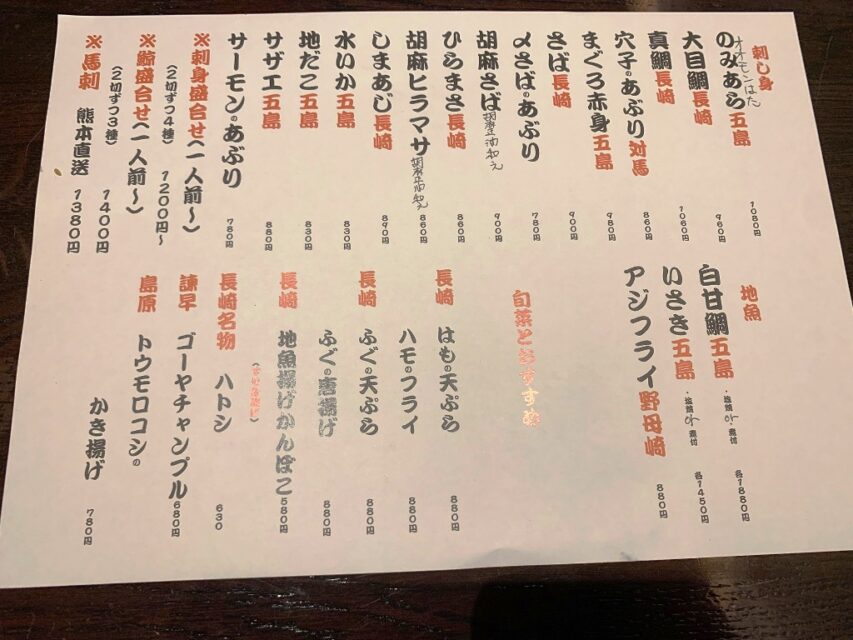 刺し身
のみあら五島 1080円
オオモンはた
大目鯛長崎 960円
真鯛長崎 1060円
穴子のあぶり対馬 860円
まぐろ赤身五島 980円
さば長崎 900円
〆さばのあぶり 780円
胡麻さば 900円
ひらまさ長崎 860円
胡麻ヒラマサ 860円
しまあじ長崎 890円
水いか五島 830円
地だこ五島 830円
サザエ五島 880円
サーモンのあぶり 780円
※刺身盛合せ(一人前~)
(2切ずつ4種) 1200円~
※鯨盛合せ(一人前~)
(2切ずつ3種) 1400円
※馬刺 熊本直送 1380円
地魚
白甘鯛五島 ・塩焼 or ・煮付 各1880円
いさき五島 ・塩焼 or ・煮付 各1450円
アジフライ野母崎 880円
旬菜とおすすめ
長崎 はもの天ぷら 880円
ハモのフライ 880円
長崎 ふぐの天ぷら 880円
ふぐの唐揚げ 880円
長崎 地魚揚げかんぼこ 580円
長崎名物 ハトシ 630
諫早 ゴーヤチャンプル 680円
島原 トウモロコシの
かき揚げ 780円